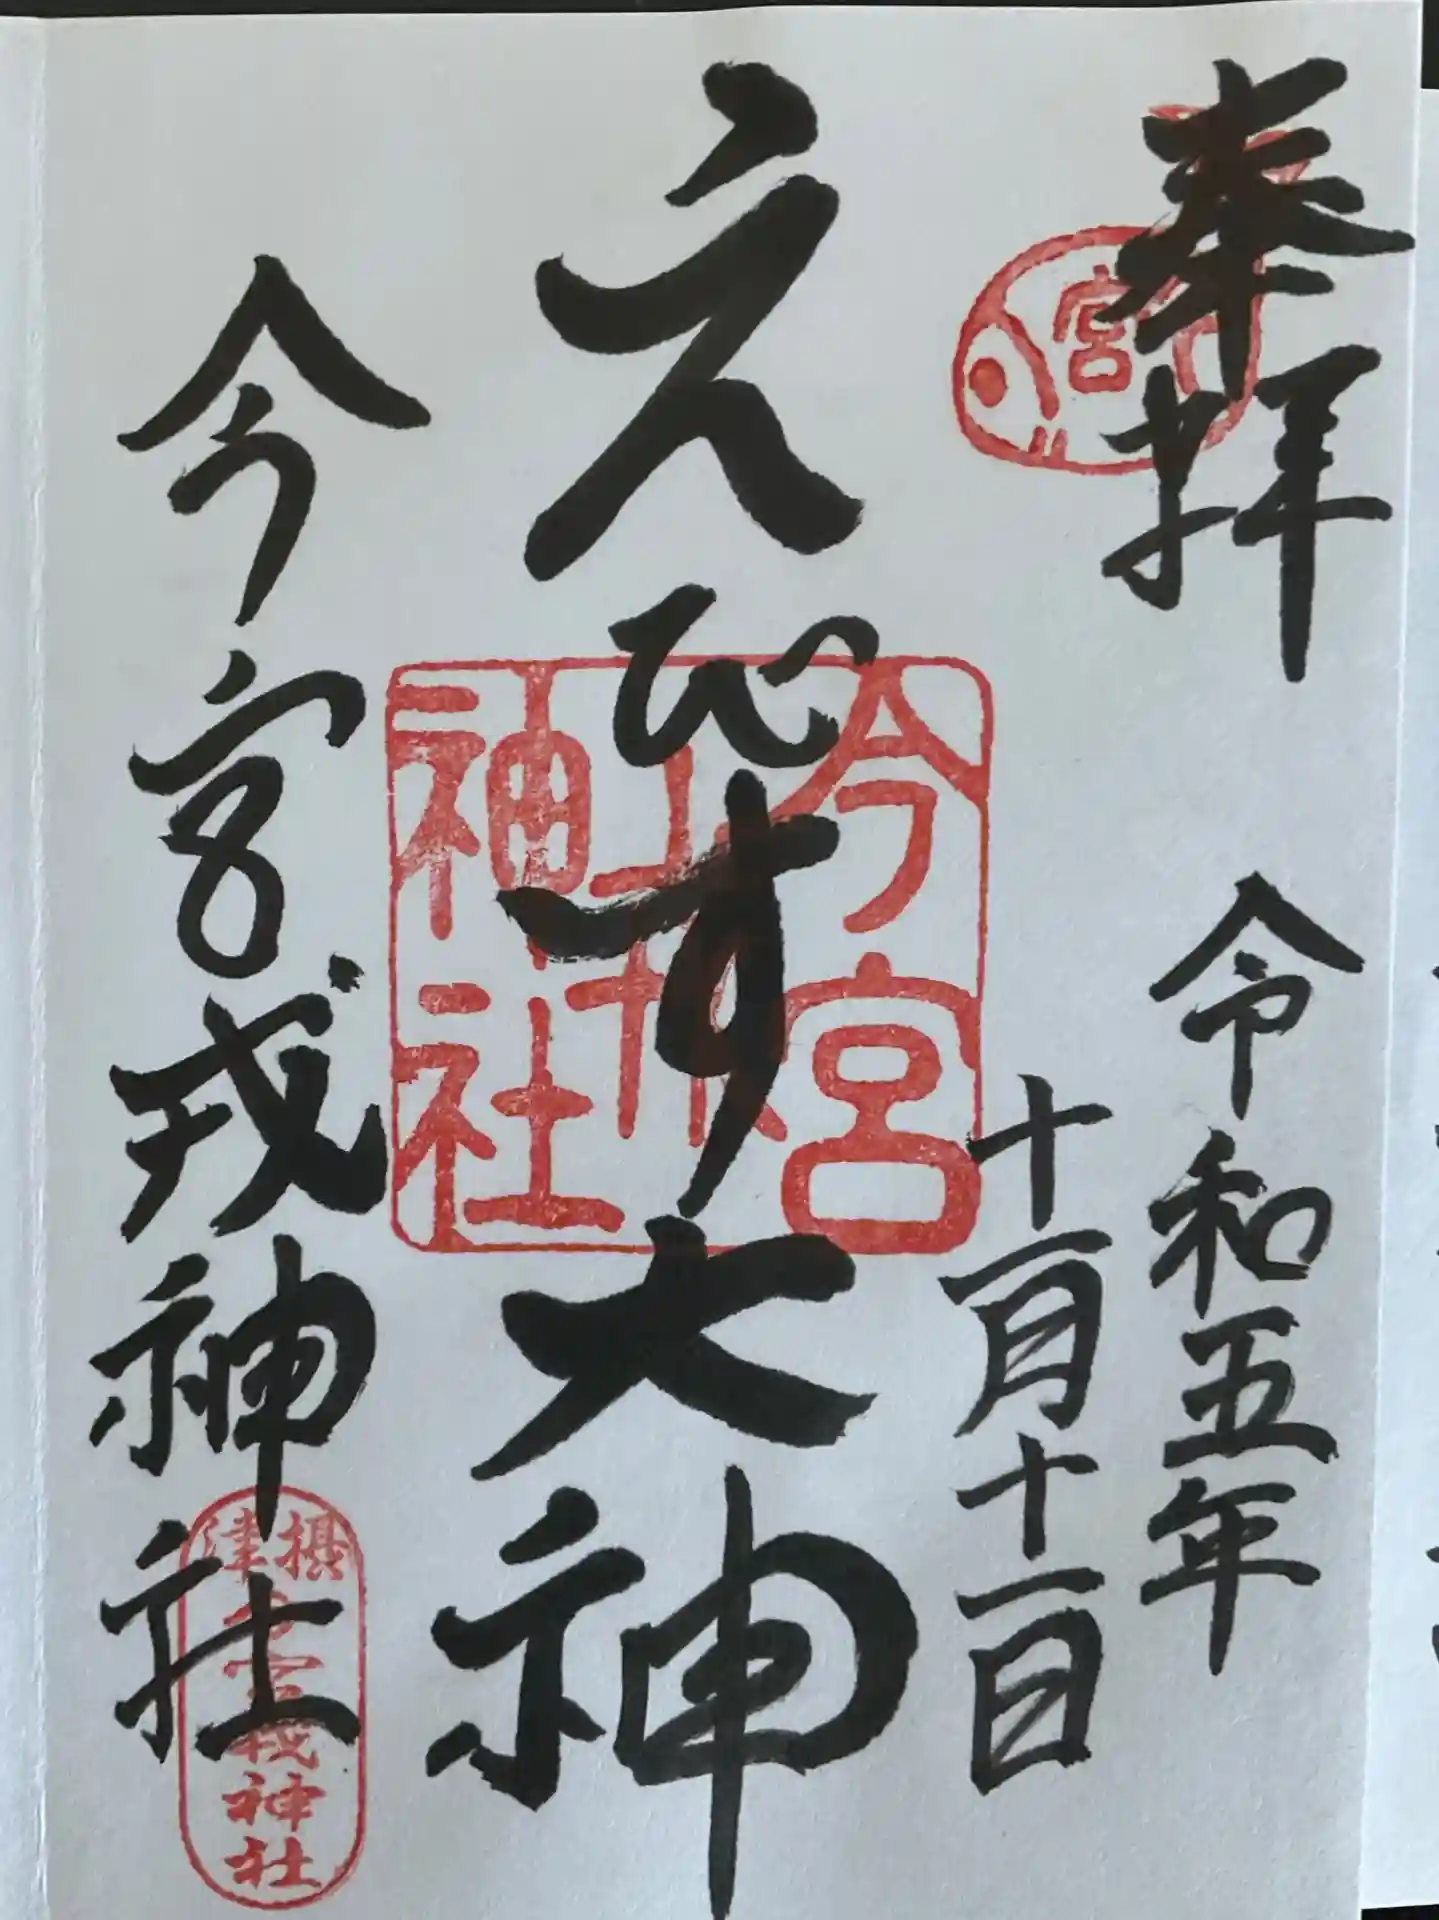 奉拝
令和五年
十一月十一日
えびす大神
今宮戎神社
宮
今宮
神社
摂津
今宮戎神社